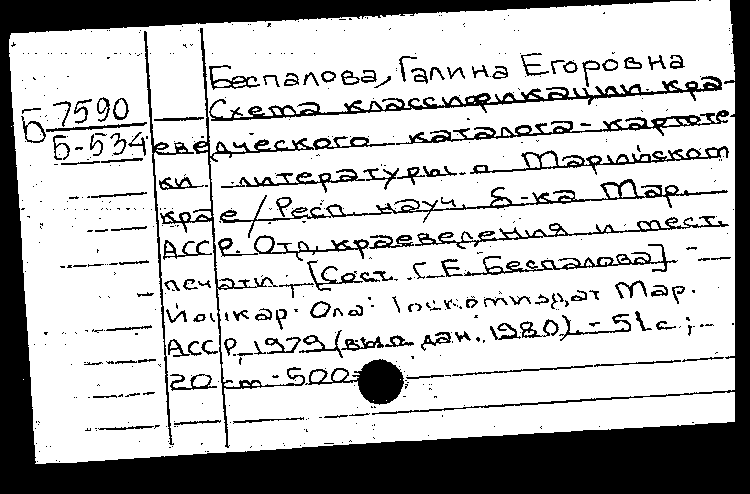 Беспалова, Галина Егоровна
Б 7590
Б-534
Схема классификации кра-
еведческого каталога-картоте-
ки литературы о Марийском
крае / Респ. науч. б-ка Мар.
АССР. Отд. краеведения и мест.
печати; [Сост. Г. Е. Беспалова]. -
Йошкар-Ола: Госкомиздат Мар.
АССР, 1979 (вып. дан. 1980). - 51 с.;
20 cm - 500